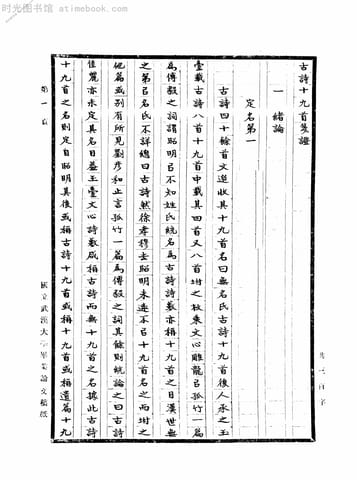 时光图书馆 - atimebook.com
古詩十九首箋證
一 緒論
定名第一
古詩四十餘首文選收其十九首名曰無名氏古詩十九首後人承之玉
臺載古詩八首十九首中載其四首又八首坿之枚乘文心雕龍弓孤竹一篇
為傅毅之詞謂昭明弓不知姓氏統名為古詩載亦稱十九首之目漢世無
之第弓名氏不詳總曰古詩然徐孝穆去昭明未遠不弓十九首之而坿之
他篇或别有所見劉彥和止言孤竹一篇為傅毅之詞其餘則統論之曰古詩
佳麗亦未定其名目蓋玉臺文心詩載咸稱古詩而無十九首之名據此古詩
十九首之名則定自昭明其後或稱古詩十九首或稱選篇十九
第一頁
國立武漢大學畢業論文稿紙
時光图书馆 - atimebook.com